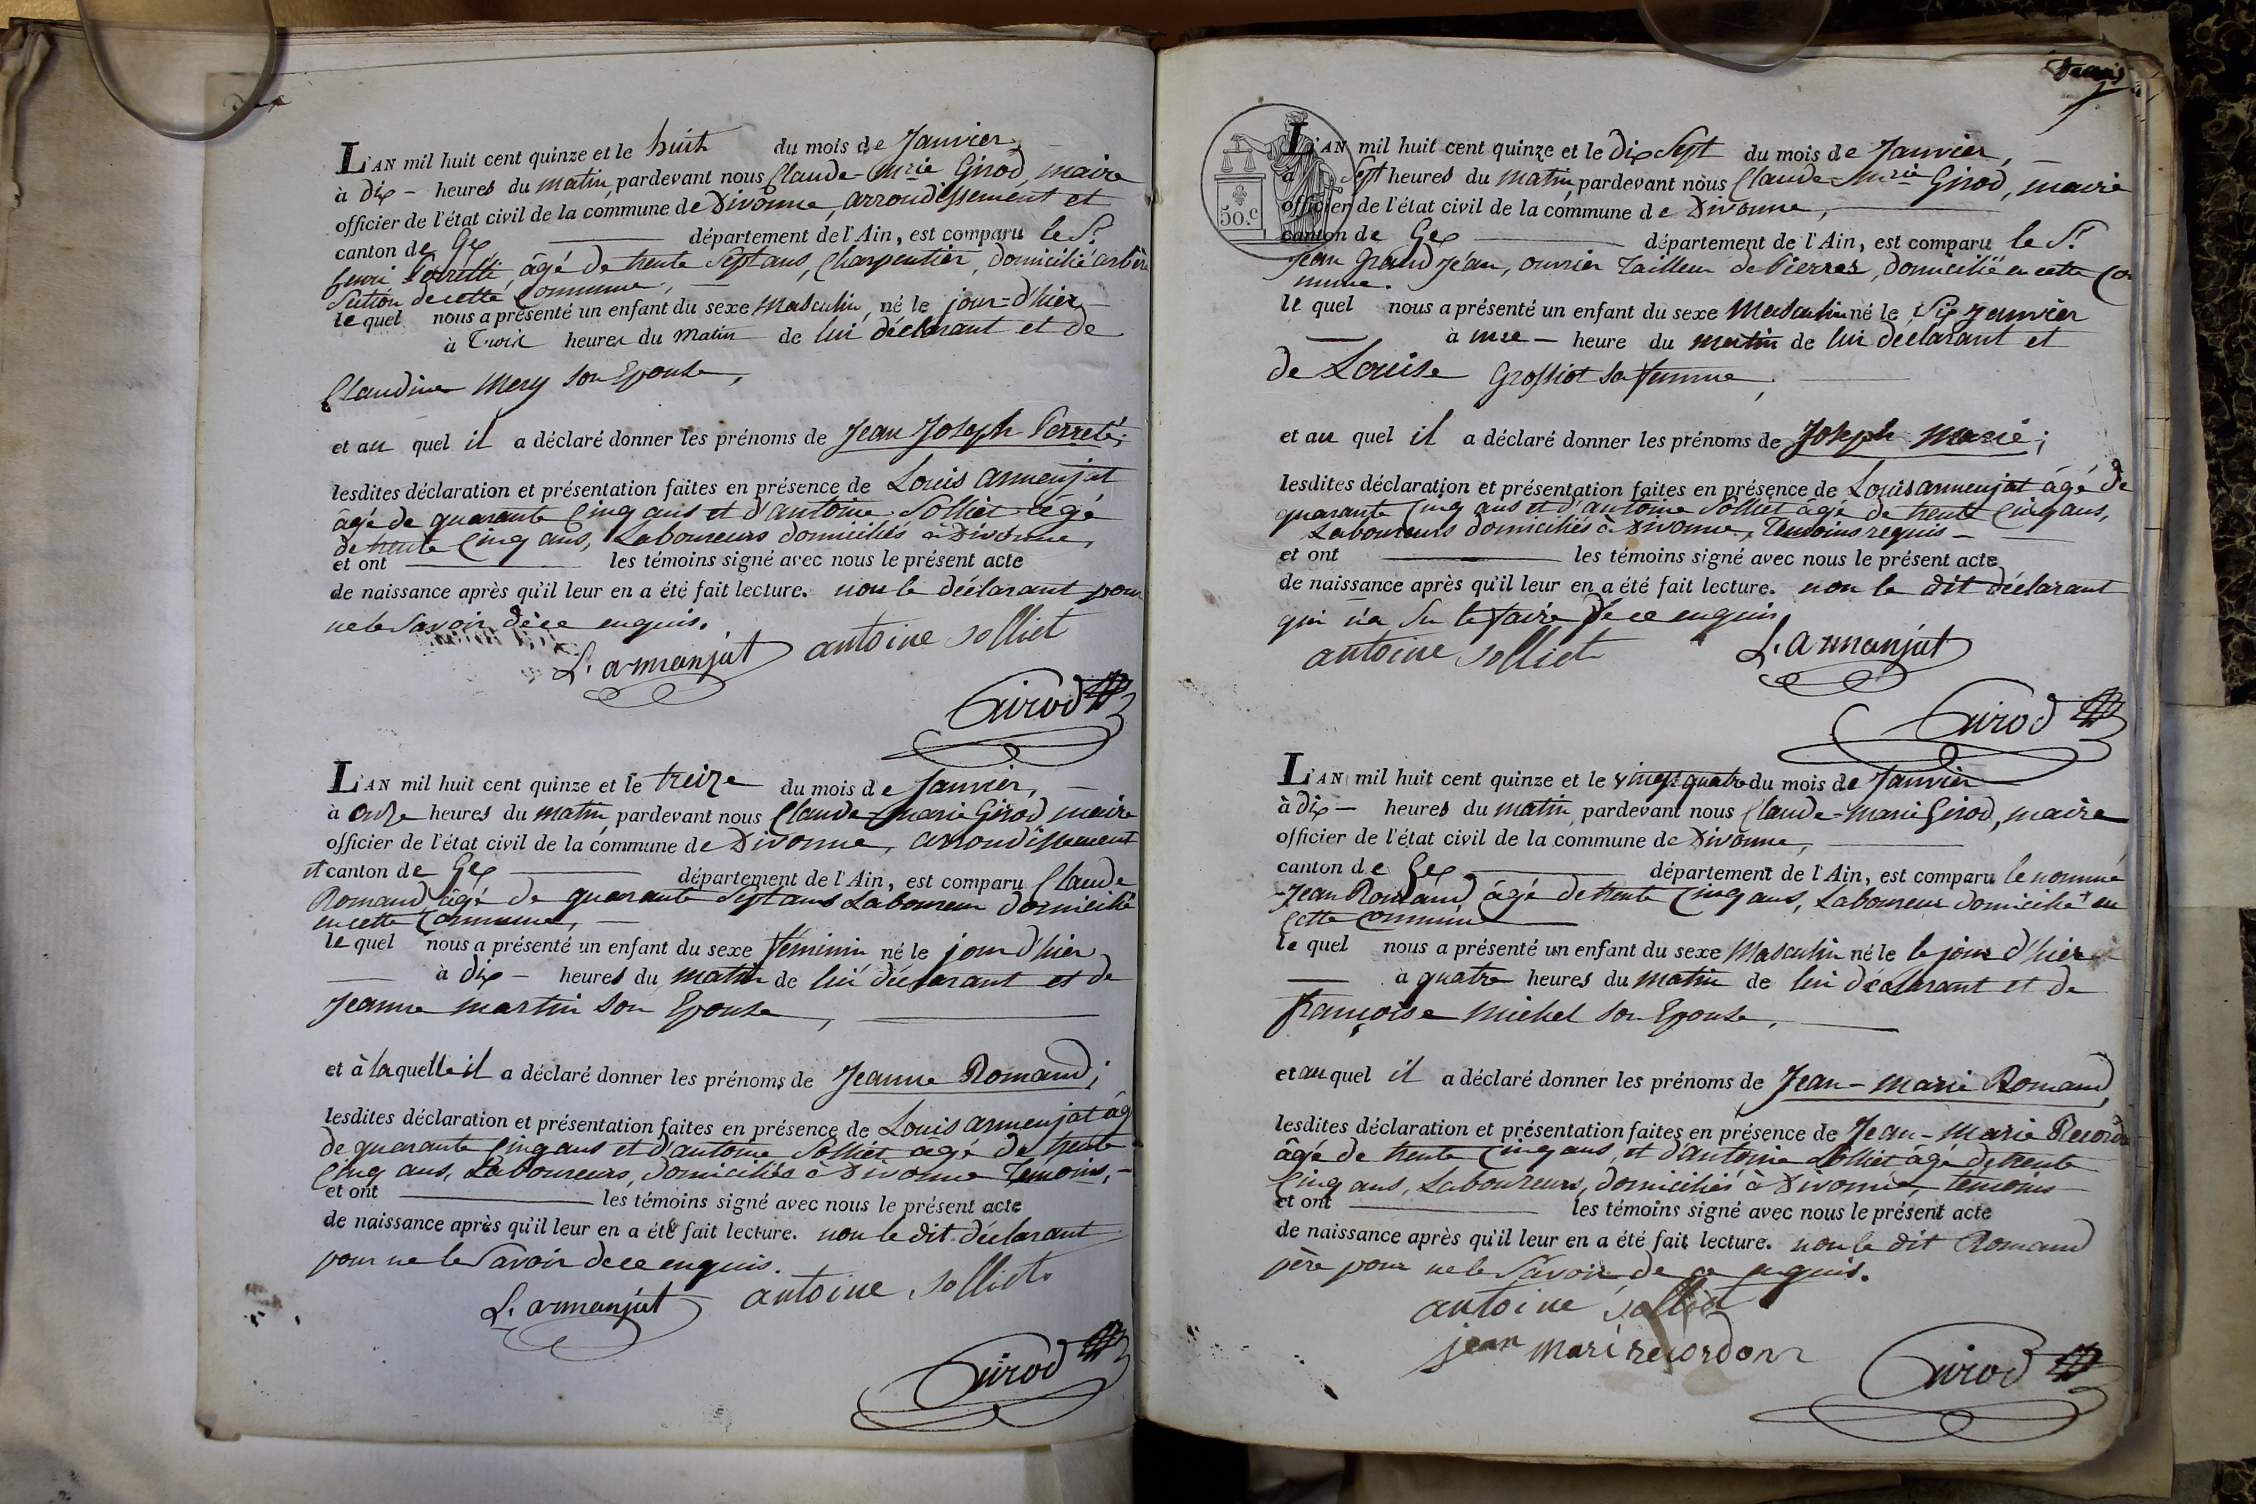 L'AN mil huit cent quinze et le huit du mois de Janvier,
à dix heures du matin, pardevant nous Claude-Mrie Girod, maire
officier de l'état civil de la commune de Divonne, arrondissement et
canton de Gex département de l'Ain, est comparu le Sr.
âgé de trente Sept ans, Charpentier, domicilié
Section de cette Commune,
le quel nous a présenté un enfant du sexe Masculin, né le jour-d'hier
à Trois heures du Matin de lui déclarant et de
Claudine Mery son Epouse,
et au quel il a déclaré donner les prénoms de Jean Joseph Perreté;
lesdites déclaration et présentation faites en présence de Louis armenjat
âgé de quarante Cinq ans et d'antoine Solliet âgé
de trente Cinq ans, Laboureurs domiciliés à Divonne,
et ont les témoins signé avec nous le présent acte
de naissance après qu'il leur en a été fait lecture. non le déclarant pour
ne le Savoir de ce enquis.
L. armanjat antoine solliet
Girod
L'AN mil huit cent quinze et le treize du mois de Janvier,
à onze heures du matin, pardevant nous Claude-marie Girod, maire
officier de l'état civil de la commune de Divonne, arrondissement
et canton de Gex département de l'Ain, est comparu Claude
Romand âgé de quarante Sept ans Laboureur domicilié
en cette Commune,
le quel nous a présenté un enfant du sexe féminin né le jour d'hier
à dix heures du matin de lui déclarant et de
Jeanne martin son Epouse,
et à laquelle il a déclaré donner les prénoms de Jeanne Romand;
lesdites déclaration et présentation faites en présence de Louis armenjat âg
de quarante Cinq ans et d'antoine Solliet âgé de trente
Cinq ans, Laboureurs, domiciliés à Divonne Temoins,
et ont les témoins signé avec nous le présent acte
de naissance après qu'il leur en a été fait lecture. non le dit déclarant
pour ne le Savoir de ce enquis.
L. armanjat antoine solliet
Girod
50.c
L'AN mil huit cent quinze et le dix Sept du mois de Janvier,
à Sept heures du matin, pardevant nous Claude-Mrie Girod, maire
officier de l'état civil de la commune de Divonne,
canton de Gex département de l'Ain, est comparu le Sr.
Jean Grand Jean, ouvrier Tailleur de Pierres, domicilié en cette Com
mune.
le quel nous a présenté un enfant du sexe Masculin né le Six Janvier
à une heure du matin de lui déclarant et
de Louise Grossiot sa femme,
et au quel il a déclaré donner les prénoms de Joseph Marie;
lesdites déclaration et présentation faites en présence de Louis armenjat âgé de
quarante Cinq ans et d'antoine Solliet âgé de trente Cinq ans,
Laboureurs domiciliés à Divonne, Témoins requis
et ont les témoins signé avec nous le présent acte
de naissance après qu'il leur en a été fait lecture. non le dit déclarant
qui n'a Su le faire de ce enquis
antoine solliet L. armanjat
Girod
L'AN mil huit cent quinze et le vingt quatre du mois de Janvier
à dix heures du matin, pardevant nous Claude-marie Girod, maire
officier de l'état civil de la commune de Divonne,
canton de Gex département de l'Ain, est comparu le nommé
Jean Romand âgé de trente Cinq ans, Laboureur domicilié en
cette commune
le quel nous a présenté un enfant du sexe Masculin né le le jour d'hier
à quatre heures du matin de lui déclarant et de
françoise michel son Epouse,
et au quel il a déclaré donner les prénoms de Jean-marie Romand,
lesdites déclaration et présentation faites en présence de Jean-Marie Recordon
âgé de trente Cinq ans, et d'antoine Solliet âgé de trente
Cinq ans, Laboureurs, domiciliés à Divonne, témoins
et ont les témoins signé avec nous le présent acte
de naissance après qu'il leur en a été fait lecture. non le dit Romand
père pour ne le Savoir de ce enquis.
antoine solliet
jean mari recordon
Girod